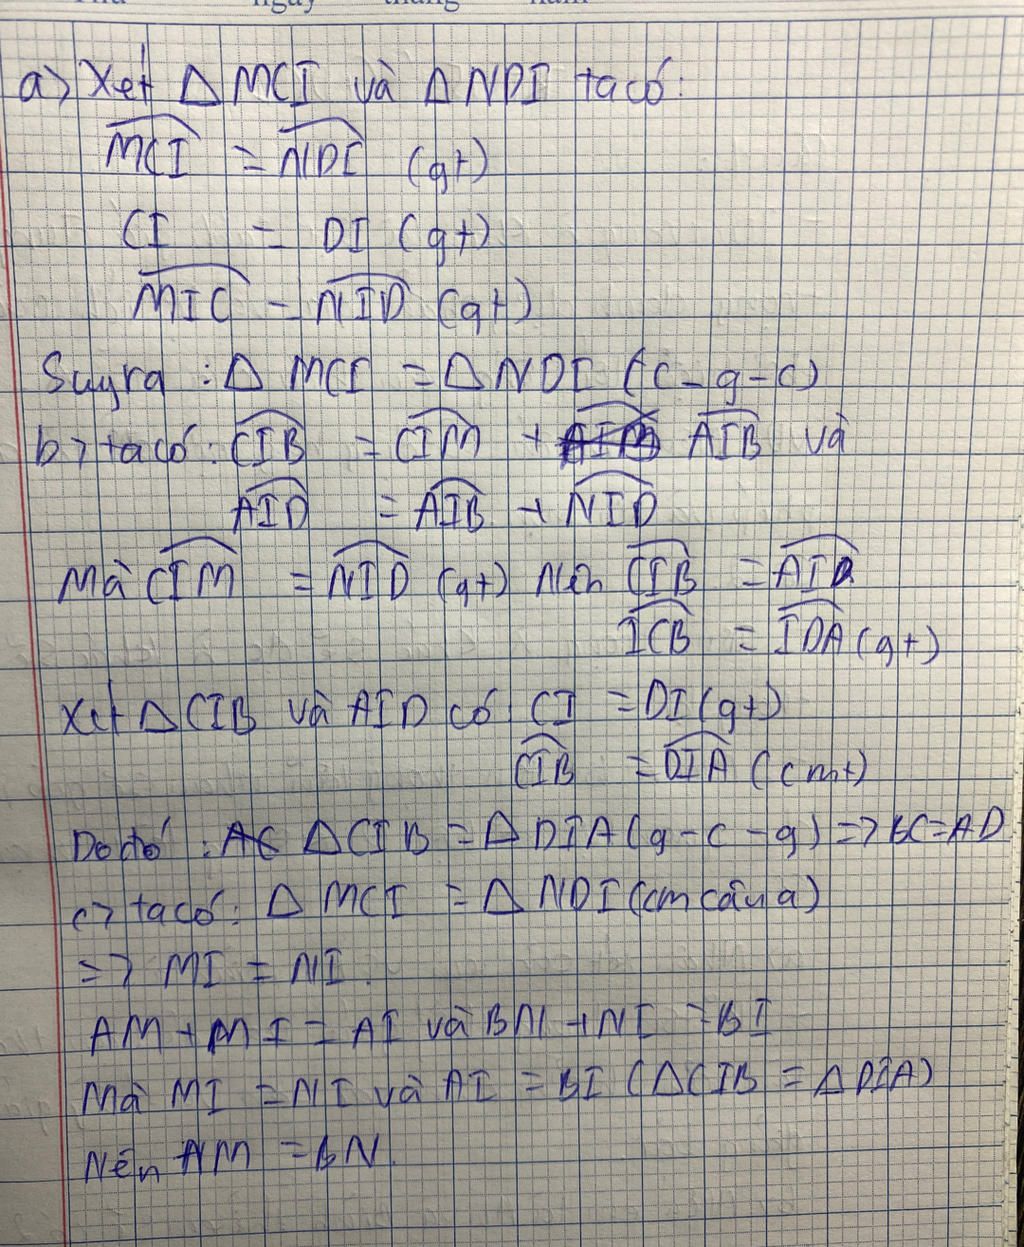 ngày tháng năm
a) Xét △ MCI và △ NDI ta có:
MCI = NDI (gt)
CI = DI (gt)
MIC = NID (gt)
Suy ra : △ MCI = △ NDI (c-g-c)
b) ta có: CIB = CIM + AIB và
AID = AIB + NID
Mà CIM = NID (gt) Nên CIB = AID
ICB = IDA (gt)
Xét △ CIB và AID có CI = DI (gt)
CIB = DIA (cmt)
Do đó : △ CIB = △ DIA (g-c-g) => BC = AD
c) ta có: △ MCI = △ NDI (cm câu a)
=> MI = NI.
AM + MI = AI và BN + NI = BI
Mà MI = NI và AI = BI (△CIB = △DIA)
Nên AM = BN.